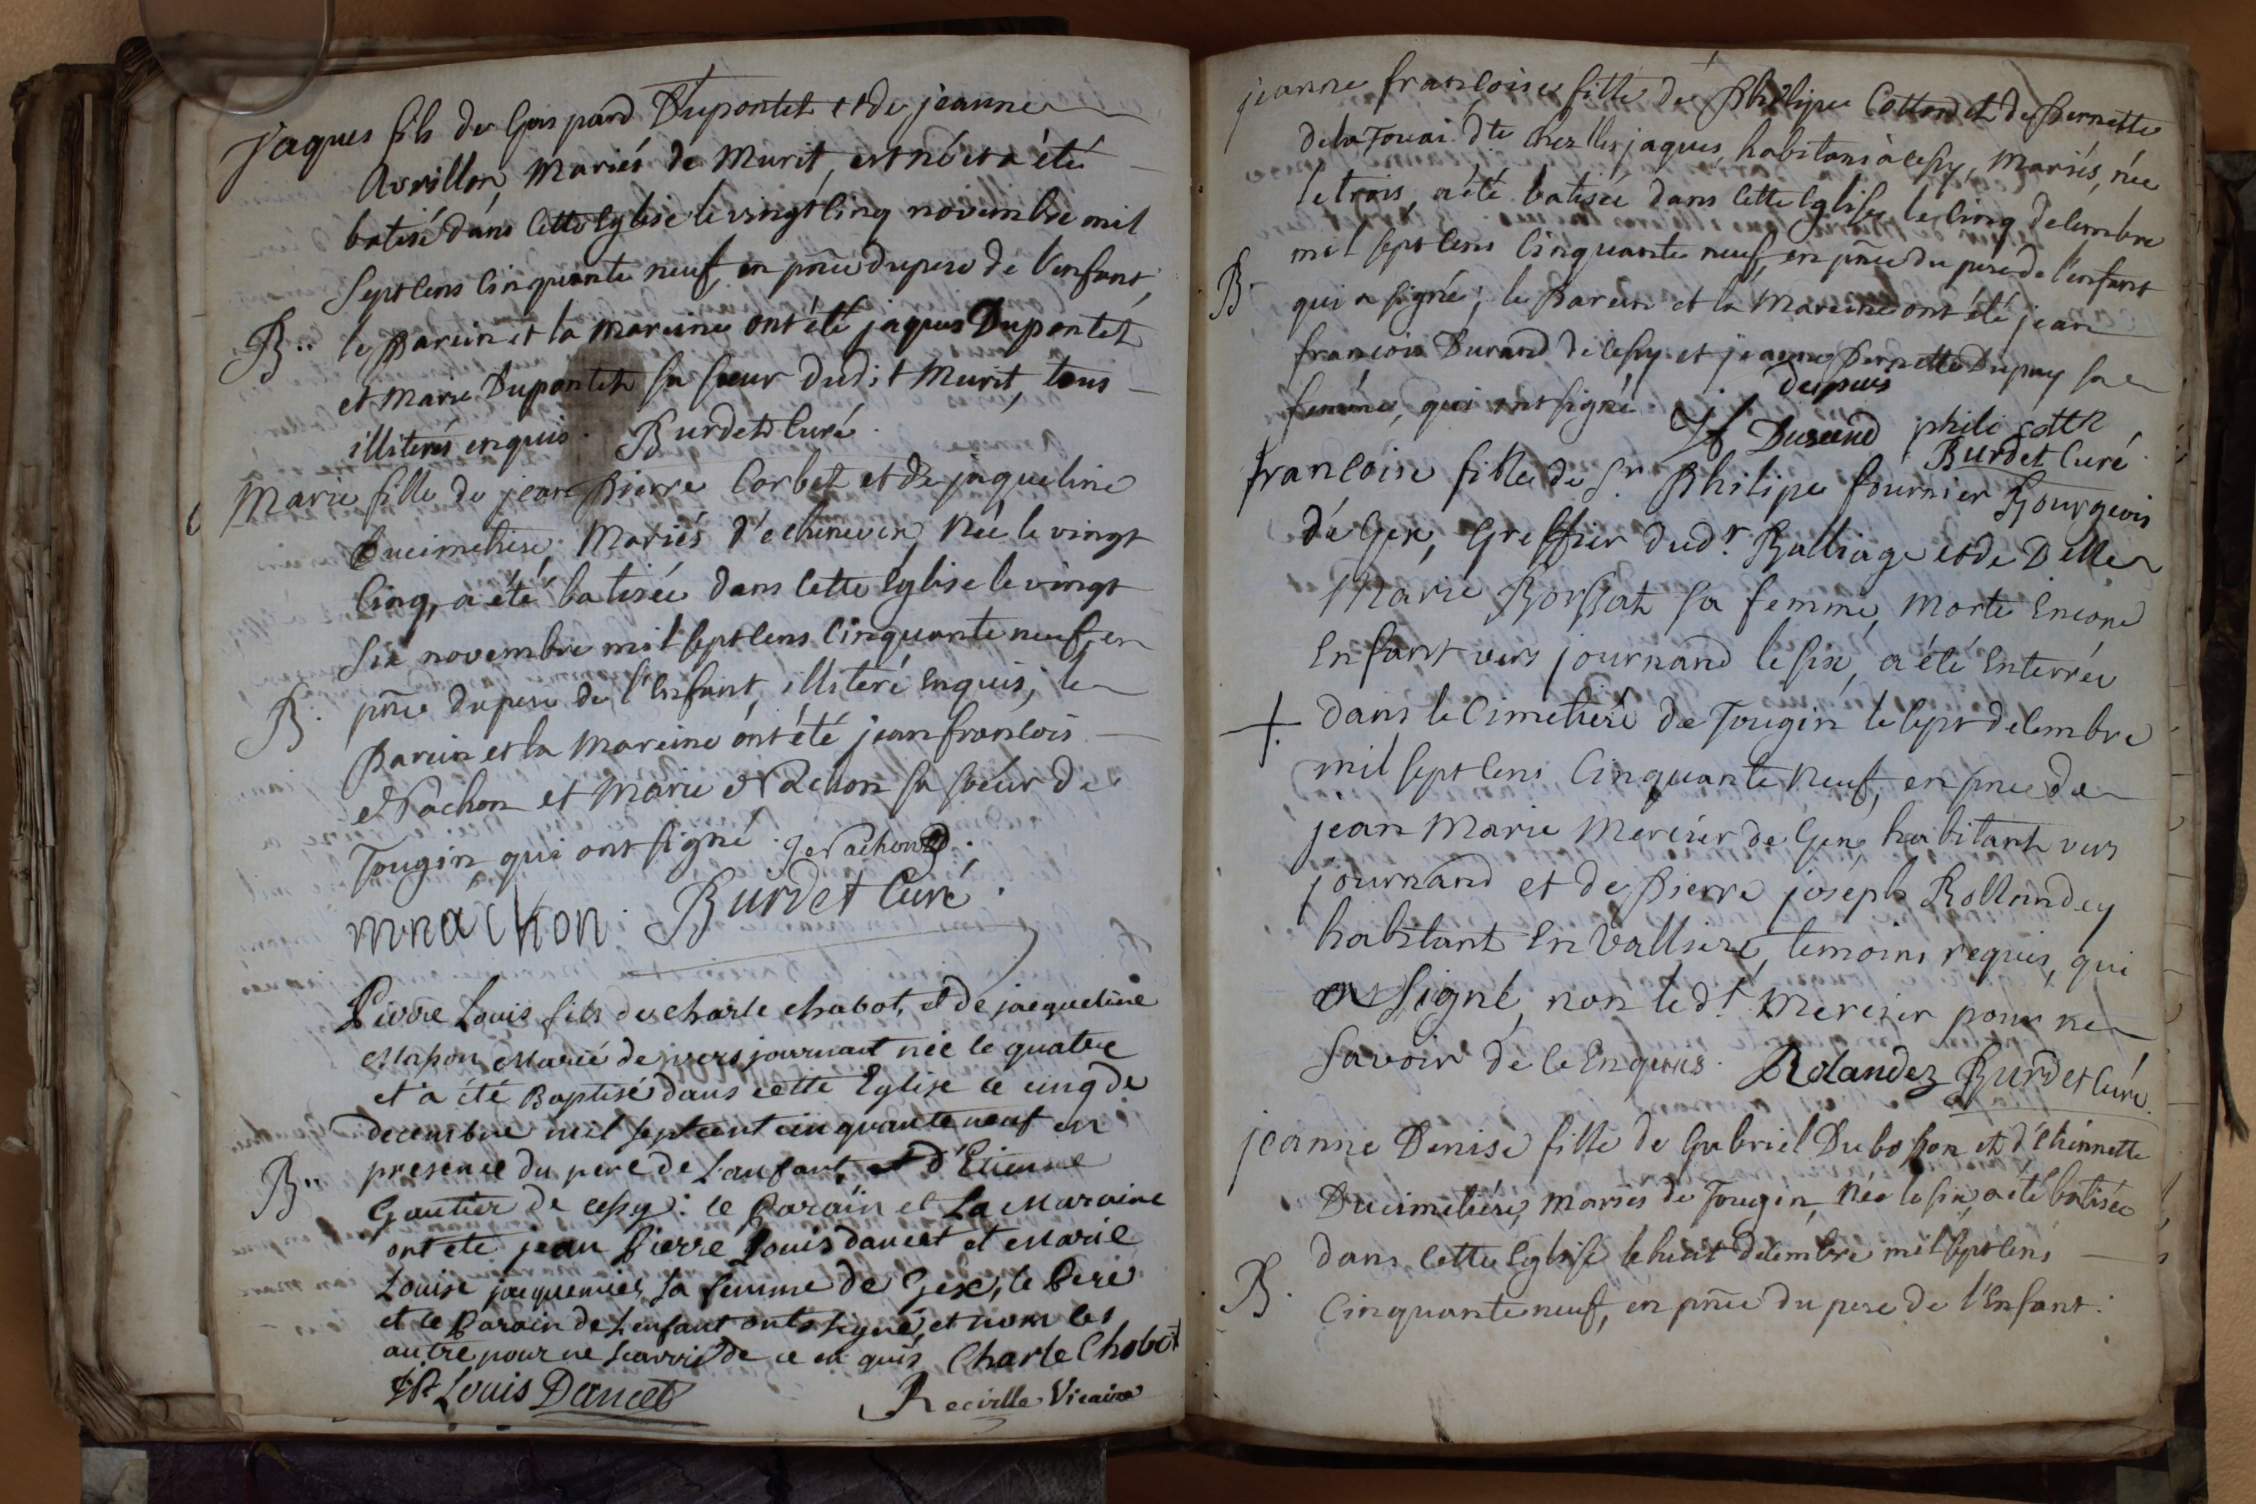 Jaques fils de Gaspard Dupontet et de jeanne
Avrillon, mariés de Murit, est né et a été
batisé dans cette Eglise le vingt cinq novembre mil
Sept cens cinquante neuf, en pnce du pere de l'enfant,
B.. le Parein et la mareine ont été jaques Dupontet
et Marie Dupontet sa sœur dudit Murit, tous
illiterés enquis. Burdet Curé.
Marie fille de jean Pierre Corbet et de jaqueline
Ducimetiere, Mariés d'echenevex, Née le vingt
Cinq, a été batisée dans cette Eglise le vingt
Six novembre mil sept cens cinquante neuf, en
B. pnce du pere de l'Enfant, illiteré Enquis; le
Parein et la Mareine ont été jean francois
Nachon et Marie Nachon sa sœur de
Tougin, qui ont signé. J f Nachon.
mnachon. Burdet Curé.
Pierre Louis fils de charle chabot, et de jacqueline
Masson Marié de vers journant née le quatre
et a été Baptisé dans cette Eglise le cinq de
decembre mil sept cent cinquante neuf en
B.. presence du pere de L'anfant, et d'Etienne
Gautier de cessy: le Parain et La Maraine
ont ete jean Pierre Louis dancet et Marie
Louise jacquemier sa femme de Gex, le Pere
et le Parain de Lenfant onts signé, et nom les
autre pour ne scavoir de ce en quis Charle Chobot
J P Louis Dancet Reciville Vicaire
jeanne francoise fille de Philipe Cotton et de Pernette
de la Fouai dte chez les jaques, habitans à Cessy, Mariés, née
le trois, a été batisée dans cette Eglise le Cinq decembre
mil sept cens Cinquante neuf, en pnce du pere de l'enfant
B. qui a signé; le Parein et la Mareine ont été jean
francois Durand de Cessy et jeanne Pernette Dupuy sa
femme, qui ont signé. depuis
J f Durand phili cottn
Burdet Curé.
francoise fille de Sr Philipe fournier Bourgeois
de Gex, Greffier dudt Balliage et de Delle
Marie Borssat sa femme, Morte Encore
Enfant vers journand le six, a été Enterrée
+ dans le Cimetiere de Tougin le sept decembre
mil sept cens Cinquante Neuf, en pnce de
jean Marie Mercier de Gex, habitant vers
journand et de Pierre joseph Rollandey
habitant En Valliere, temoins requis, qui
ont signé, non ledt Mercier pour ne
savoir de ce Enquis. Rolandez Burdet Curé.
jeanne Denise fille de Gabriel Dubosson et d'Ethinnette
Ducimetiere, mariés de Tougin, Née le six, a été batisée
dans cette Eglise le huit decembre mil sept cens
B. Cinquante neuf, en pnce du pere de l'Enfant.